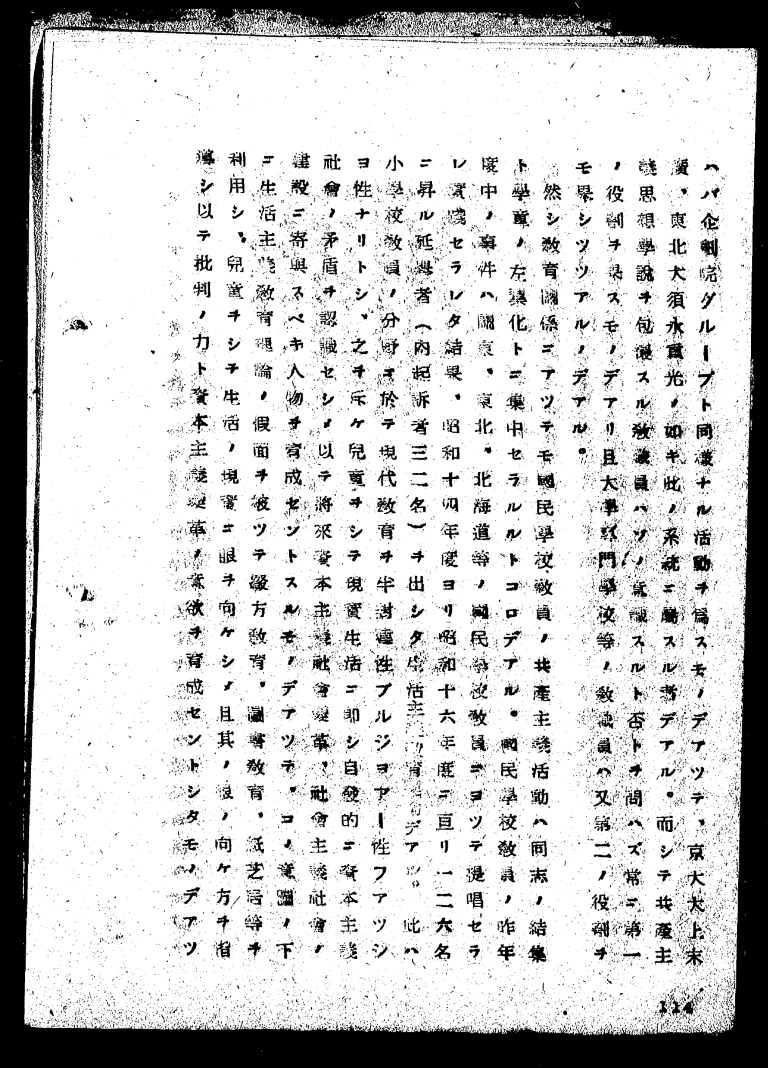 ハバ企劃院グループト同樣ナル活動ヲ爲スモノデアツテ、京大大上末
廣、東北大須永重光ノ如キ此ノ系統ニ屬スル者デアル。而シテ共產主
義思想學說ヲ包懷スル敎職員ハソノ意識スルト否トヲ問ハズ常ニ第一
ノ役割ヲ果スモノデアリ且大學專門學校等ノ敎職員ハ又第二ノ役割ヲ
モ果シツツアルノデアル。
然シ敎育關係ニアツテモ國民學校敎員ノ共產主義活動ハ同志ノ結集
ト學童ノ左翼化トニ集中セラルルトコロデアル。國民學校敎員ノ昨年
度中ノ事件ハ關東、東北、北海道等ノ國民學校敎員ニヨツテ提唱セラ
レ實踐セラレタ結果、昭和十四年度ヨリ昭和十六年度ニ亘リ一二六名
ニ昇ル延擧者（內起訴者三二名）ヲ出シタ生活主 育 デアツ 此ハ
小學校敎員ノ分野ニ於テ現代敎育ヲ半封建性ブルジヨアー性フアツシ
ヨ性ナリトシ、之ヲ斥ケ兒童ヲシテ現實生活ニ卽シ自發的ニ資本主義
社會ノ矛盾ヲ認識セシメ以テ將來資本主義社會變革、社會主義社會ノ
建設ニ寄與スベキ人物ヲ育成セントスルモノデアツテ、コノ意圖ノ下
ニ生活主義敎育理論ノ假面ヲ被ツテ綴方敎育、圖書敎育、紙芝居等ヲ
利用シ、兒童ヲシテ生活ノ現實ニ眼ヲ向ケシメ且其ノ眼ノ向ケ方ヲ指
導シ以テ批判ノ力ト資本主義變革ノ意欲ヲ育成セントシタモノデアツ
114